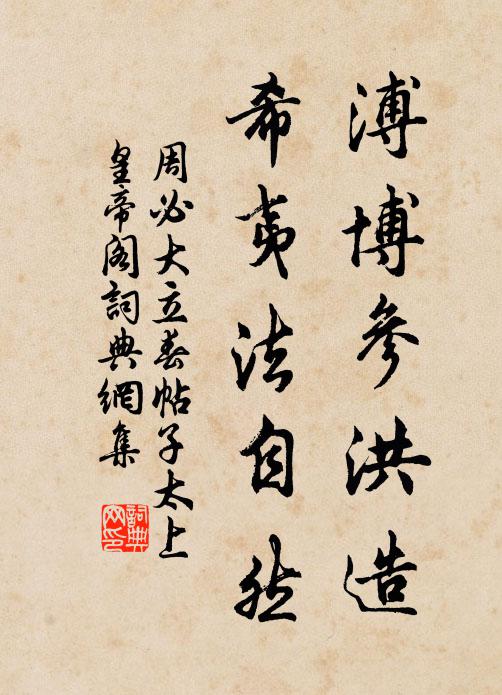 溥博參洪造
希夷法自然
周必大立春帖子太上
皇帝阁詞典網集
詞典網印